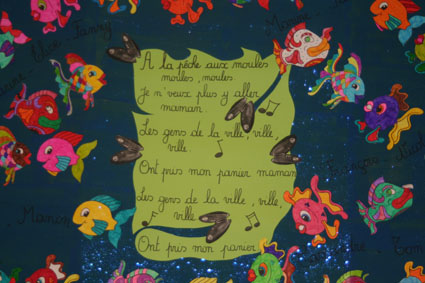 A la pêche aux moules
moules, moules.
Je n'veux plus y aller
maman
Les gens de la ville, ville,
ville.
Ont pris mon panier maman
Les gens de la ville, ville,
ville
Ont pris mon panier
Manon
Fanny